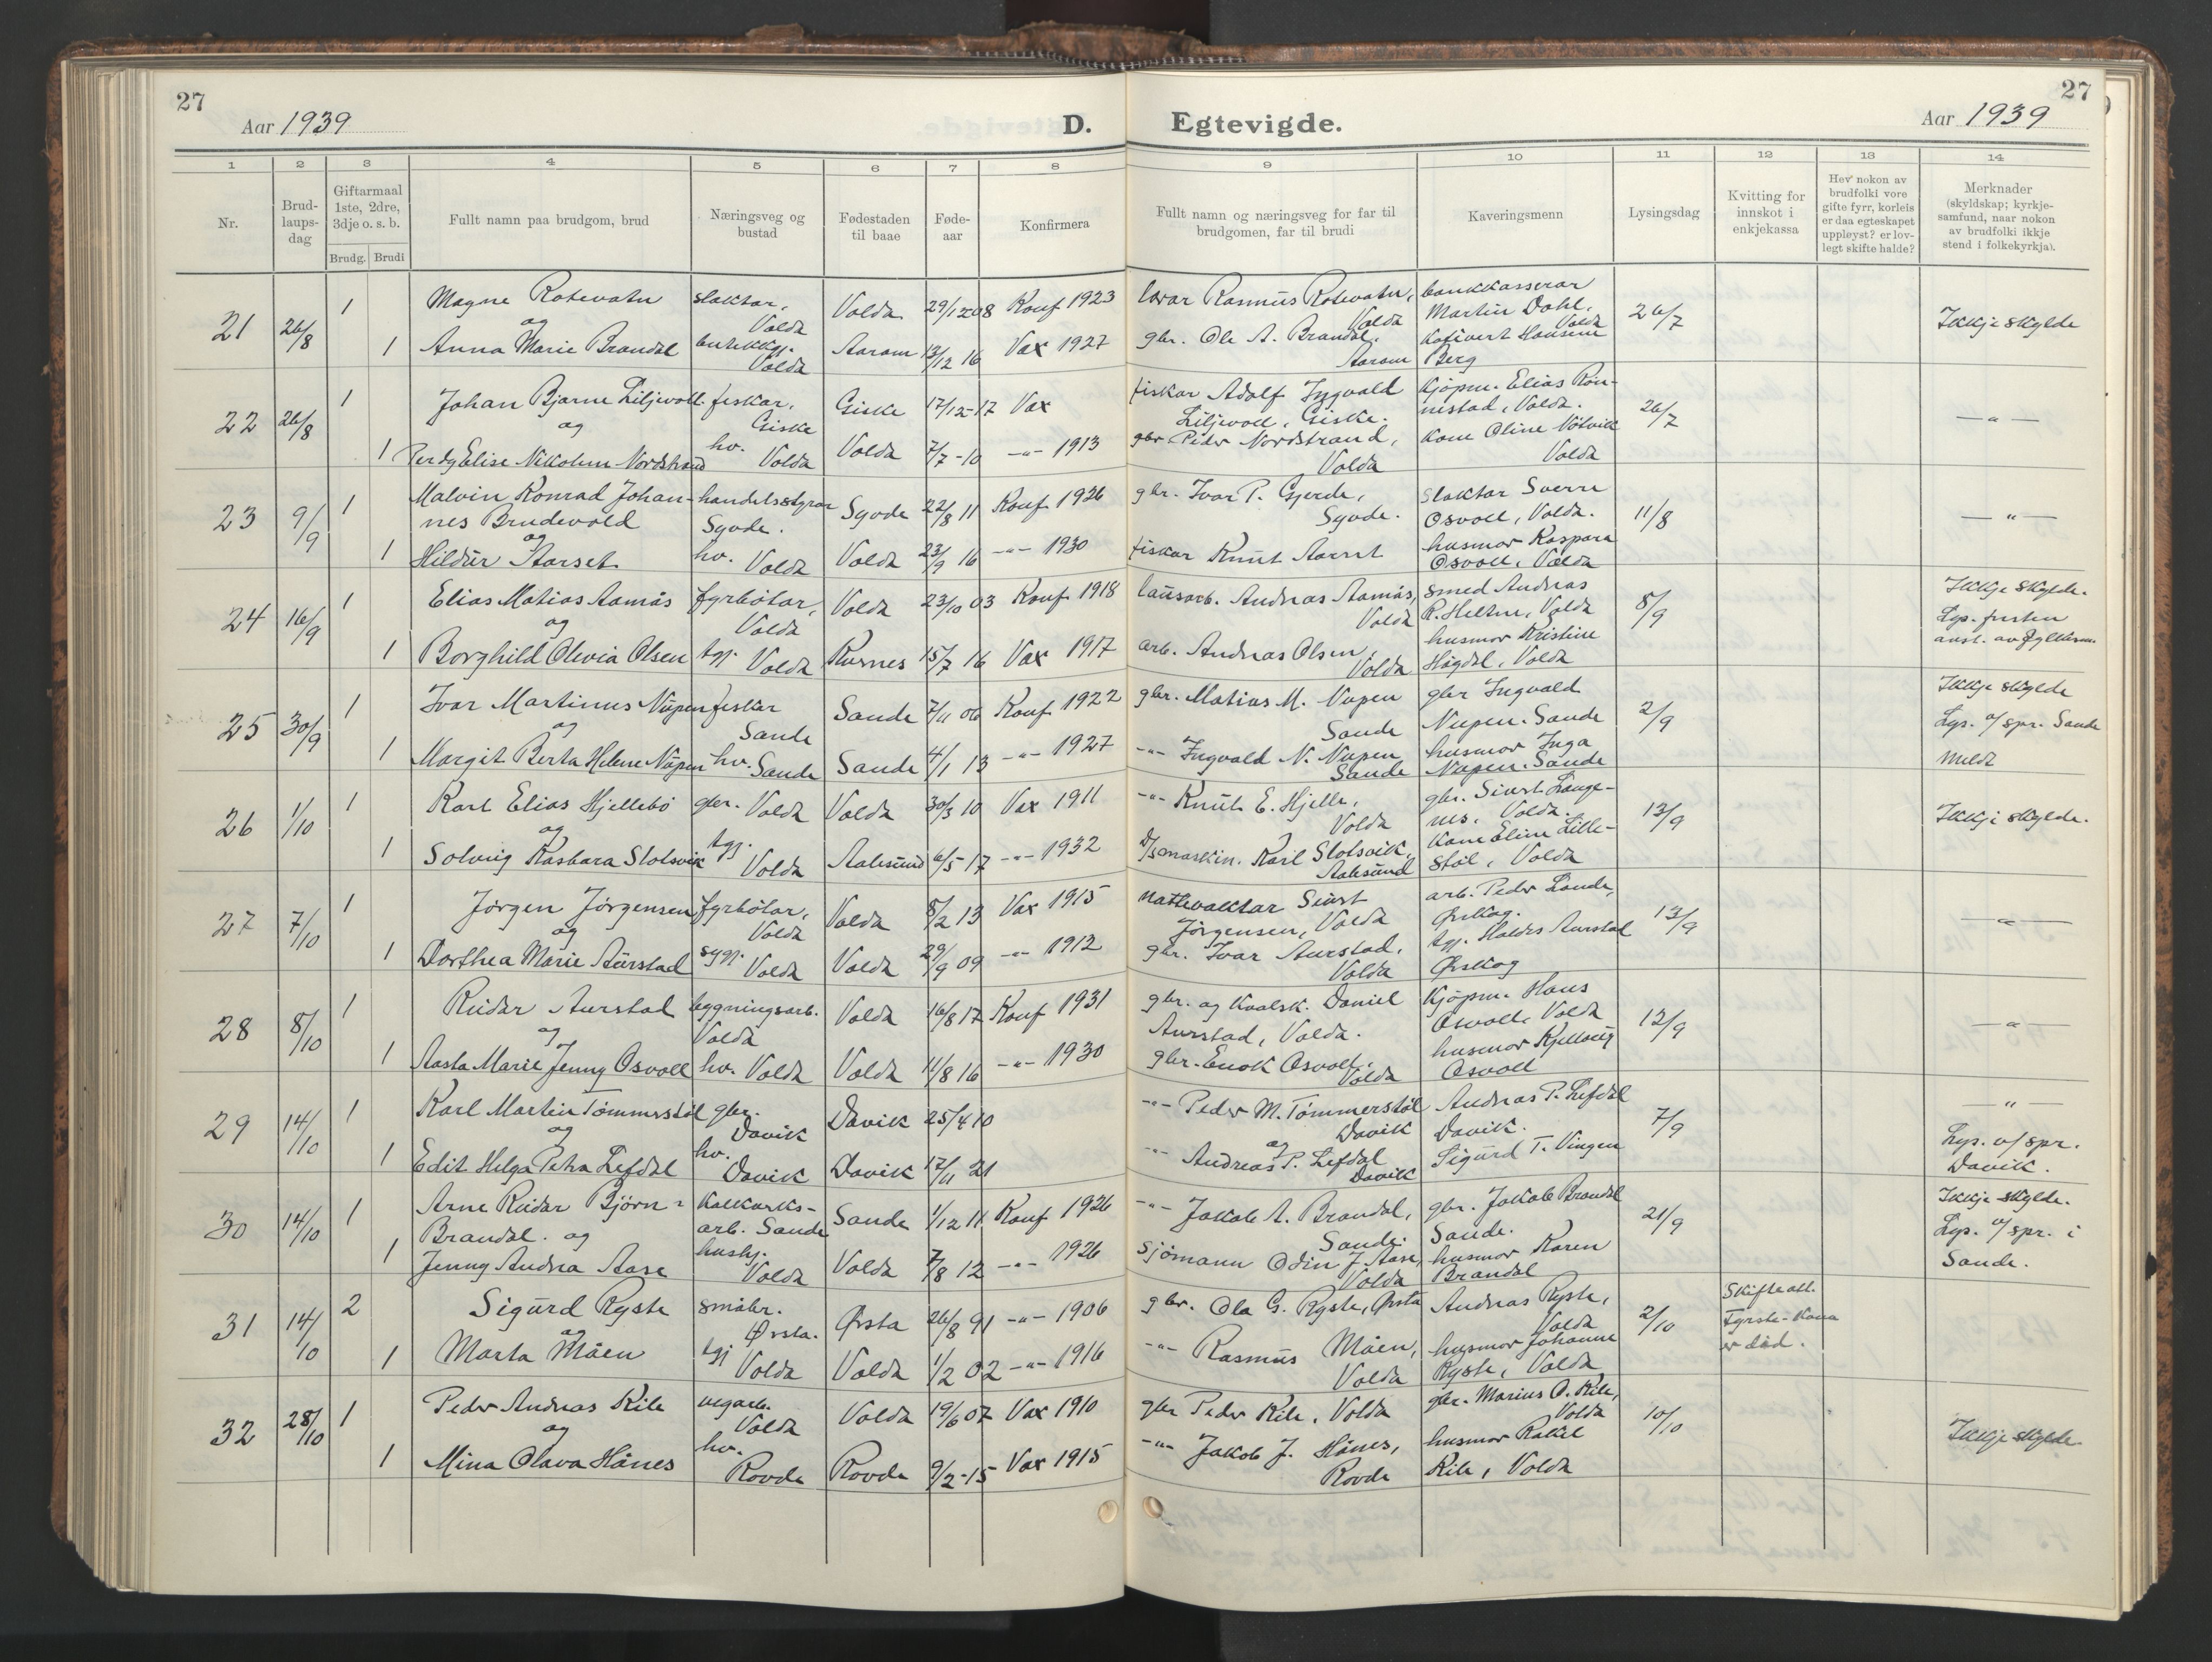 27
Aar 1939
D.
Egtevigde.
27
Aar 1939
1 2 3 4 5 6 7 8 9 10 11 12 13 14
Nr.
Brud-
laups-
dag
Giftarmaal
1ste, 2dre,
3dje o. s. b.
Brudg. Brudi
Fullt namn paa brudgom, brud
Næringsveg og
bustad
Fødestaden
til baae
Føde-
aar
Konfirmera
Fullt namn og næringsveg for far til
brudgomen, far til brudi
Kaveringsmenn
Lysingsdag
Kvitting for
innskot i
enkjekassa
Hev nokon av
brudfolki vore
gifte fyrr, korleis
er daa egteskapet
uppløyst? er lov-
legt skifte halde?
Merknader
(skyldskap; kyrkje-
samfund, naar nokon
av brudfolki ikkje
stend i folkekyrkja).
21 26/8
1 Magne Rotevatn slaktar, Volda Volda 29/12 08 Konf 1923 Rasmus Rotevatn, Volda bankkasserar Martin Dahl, Volda 26/7 Ikkje skylde
og
1 Anna Marie Brandal Volda Aaram 13/12 16 Vax 1927 gbr. Ole A. Brandal. Aaram Hansine Berg
22 26/8
1 Johan Bjarne Liljevoll fiskar, Giske Giske 17/12-17 Vax fiskar Adolf Ingvald Liljevoll, Giske. Kjøpm. Elias Røn-
nestad, Volda. 26/7 —"—
og
1 Elise Nikoline Nordstrand hv. Volda Volda 7/7-10 -"- 1913 gbr Peder Nordstrand, Volda Kone Oline Nötvik Volda
23 9/9
1 Malvin Konrad Johan-
nes Brudevold handelsstyrar Syvde. Syvde 22/8 11 Konf 1926 gbr. Ivar P. Gjerde, Syvde. Slaktar Sverre Osvoll, Volda. 11/8 —"—
og
1 Hildur Aarset hv. Volda Volda 23/9 16 -"- 1930 fiskar Knut Aarset husmor Kaspara Osvoll, Volda
24 16/9
1 Elias Matias Aamås fyrbötar, Volda Volda 23/10 03 Konf 1918 lausarb. Andreas Aamås, Volda smed Andreas R. Heltne, Volda 8/9 Ikkje skylde.
og
1 Borghild Olivia Olsen tgj. Volda Kornes 15/7 16 Vax 1917 arb. Andreas Olsen, Volda husmor Kristine Högdal, Volda Lys. fristen
25 30/9
1 Ivar Martinus Nupen fiskar Sande Sande 7/11 06 Konf 1922 gbr. Matias M. Nupen Sande gbr Ingvald Nupen. Sande 2/9 Ikkje skylde
Lys. o/ spr. Sande
og
1 Margit Berta Helene Nupen hv. Sande Sande 4/1 13 -"- 1927 -"- Ingvald N. Nupen Sande husmor Inga Nupen. Sande
26 1/10
1 Karl Elias Hjellebö gbr. Volda Volda 30/3 10 Vax 1911 -"- Knut E. Hjelle, Volda gbr. Sivert Lange-
nes. Volda. 13/9 Ikkje skylde.
og
1 Solveig Kasbara Slotsvik tgj. Volda Aalesund 6/5 17 -"- 1932 Karl Slotsvik, Aalesund Kone Eline Lille-
stöl, Volda
27 7/10
1 Jörgen Jörgensen fyrbötar, Volda Volda 8/2 13 Vax 1915 Nattevaktar Sivert Jörgensen, Volda arb. Peder Lande, Ørskog. 13/9 —"—
og
1 Dorthea Marie Aurstad sygj. Volda Volda 29/9 09 -"- 1912 gbr. Ivar Aurstad, Volda tgj. Haldis Aurstad Ørskog
28 8/10
1 Reidar Aurstad bygningsarb. Volda Volda 16/8 17 Konf 1931 gbr. og kvalsk. Daniel Aurstad, Volda. Kjøpm. Hans Osvoll, Volda 12/9 —"—
og
1 Aasta Marie Jenny Osvoll hv. Volda Volda 11/8 16 -"- 1930 gbr. Enok Osvoll, Volda husmor Kjellaug Osvoll
29 14/10
1 Karl Martin Tömmerstöl gbr. Davik Davik 25/4 10 -"- Peder M. Tömmerstöl Davik Andreas P. Lefdal Davik. 7/9 —"—
Lys. o/ spr.
Davik.
og
1 Edit Helga Petra Lefdal hv. Davik Davik 17/11 21 -"- Andreas P. Lefdal Davik Sigurd T. Vingen
30 14/10
1 Arne Reidar Björn-
Brandal. og kalkverks-
arb. Sande Sande 1/12 11 Konf 1926 -"- Jakob A. Brandal, Sande. gbr. Jakob Brandal Sande. 21/9 Ikkje skylde.
Lys. o/ spr. i
Sande.
1 Jenny Andrea Aase hushj. Volda Volda 7/8 12 -"- 1926 Sjömann Odin J. Aase, Volda husmor Karen Brandal
31 14/10
2 Sigurd Ryste småbr. Ørsta. Ørsta 26/8 91 -"- 1906 gbr. Ola G. Ryste, Ørsta Andreas Ryste, Volda 2/10 Skifteatt.
Fyrste-kona
er död.
og
1 Marta Måen tgj Volda Volda 1/2 02 -"- 1916 -"- Rasmus Måen, Volda husmor Johanne Ryste, Volda
32 28/10
1 Peder Andreas Kile vegarb. Volda Volda 19/6 07 Vax 1910 gbr Peder Kile, Volda gbr. Marius O. Kile, Volda 10/10 Ikkje skylde
og
1 Mina Olava Hånes hv. Rovde Rovde 9/2-15 Vax 1915 -"- Jakob J. Hånes, Rovde husmor Rakel Kile, Volda